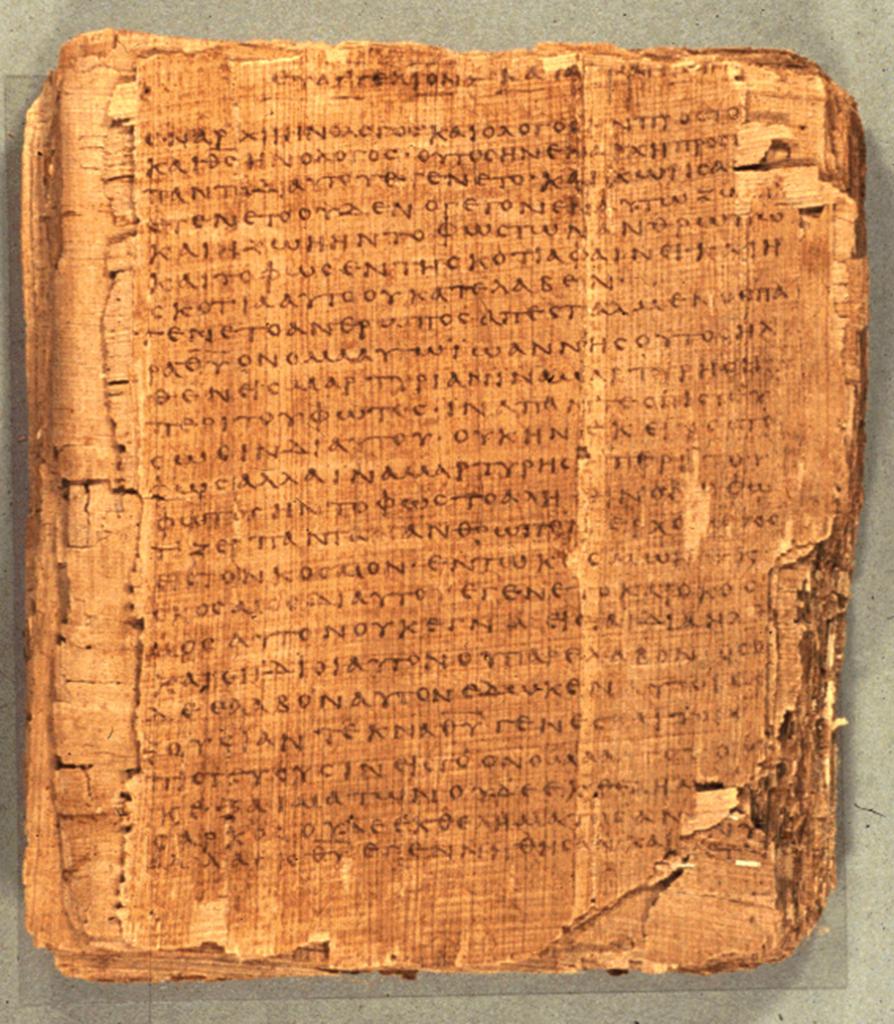 ΕΥΑΓΓΕΛΙΟΝ ΚΑΤΑ ΙΩΑΝΝΗΝ
ΕΝΑΡΧΗΗΝΟΛΟΓΟϹΚΑΙΟΛΟΓΟϹΗΝΠΡΟϹΤΟ
ΚΑΙΘϹΗΝΟΛΟΓΟϹ·ΟΥΤΟϹΗΝΕΝΑΡΧΗΠΡΟϹΤ
ΠΑΝΤΑΔΙΑΥΤΟΥΕΓΕΝΕΤΟ·ΚΑΙΧΩΡΙϹΑ
ΕΓΕΝΕΤΟΟΥΔΕΝΟΓΕΓΟΝΕΝΕΝΑΥΤΩΖΩ
ΚΑΙΗΖΩΗΗΝΤΟΦΩϹΤΩΝΑΝΘΡΩΠΩ
ΚΑΙΤΟΦΩϹΕΝΤΗϹΚΟΤΙΑΦΑΙΝΕΙ·ΚΑΙΗ
ϹΚΟΤΙΑΑΥΤΟΟΥΚΑΤΕΛΑΒΕΝ·
ΕΓΕΝΕΤΟΑΝΘΡΩΠΟϹΑΠΕϹΤΑΛΜΕΝΟϹΠΑ
ΡΑΘΥΟΝΟΜΑΑΥΤΩΙΩΑΝΝΗϹΟΥΤΟϹΗΛ
ΘΕΝΕΙϹΜΑΡΤΥΡΙΑΝΙΝΑΜΑΡΤΥΡΗϹΗ
ΠΕΡΙΤΟΥΦΩΤΟϹ·ΙΝΑΠΑΝΤΕϹΠΙϹΤΕΥ
ϹΩϹΙΝΔΙΑΥΤΟΥ·ΟΥΚΗΝΕΚΕΙΝΟϹΤΟ
ΦΩϹΑΛΛΑΙΝΑΜΑΡΤΥΡΗϹΗΠΕΡΙΤΟΥ
ΦΩΤΟϹΗΝΤΟΦΩϹΤΟΑΛΗΘΙΝΟΝΟΦΩ
ΤΙΖΕΙΠΑΝΤΑΑΝΘΡΩΠΟΝΕΡΧΟΜΕΝΟΝ
ΕΙϹΤΟΝΚΟϹΜΟΝ·ΕΝΤΩΚΟϹΜΩΗΝΚΑΙ
ΟΚΟϹΜΟϹΔΙΑΥΤΟΥΕΓΕΝΕΤΟΚΑΙΟΚΟϹ
ΜΟϹΑΥΤΟΝΟΥΚΕΓΝΩΕΙϹΤΑΙΔΙΑΗΛ
ΚΑΙΟΙΙΔΙΟΙΑΥΤΟΝΟΥΠΑΡΕΛΑΒΟΝ·ΟϹΟΙ
ΔΕΕΛΑΒΟΝΑΥΤΟΝΕΔΩΚΕΝΑΥΤΟΙϹΕΞ
ΟΥϹΙΑΝΤΕΚΝΑΘΥΓΕΝΕϹΘΑΙΤΟΙϹ
ΠΙϹΤΕΥΟΥϹΙΝΕΙϹΤΟΟΝΟΜΑΑΥΤΟΥ
ΚΕΞΑΙΜΑΤΩΝΟΥΔΕΕΚΘΕΛΗΜΑ
ϹΑΡΚΟϹΟΥΔΕΕΚΘΕΛΗΜΑΤΟϹΑΝ
ΑΛΛΑΕΚΘΥΕΓΕΝΝΗΘΗϹΑΝΚΑΙ